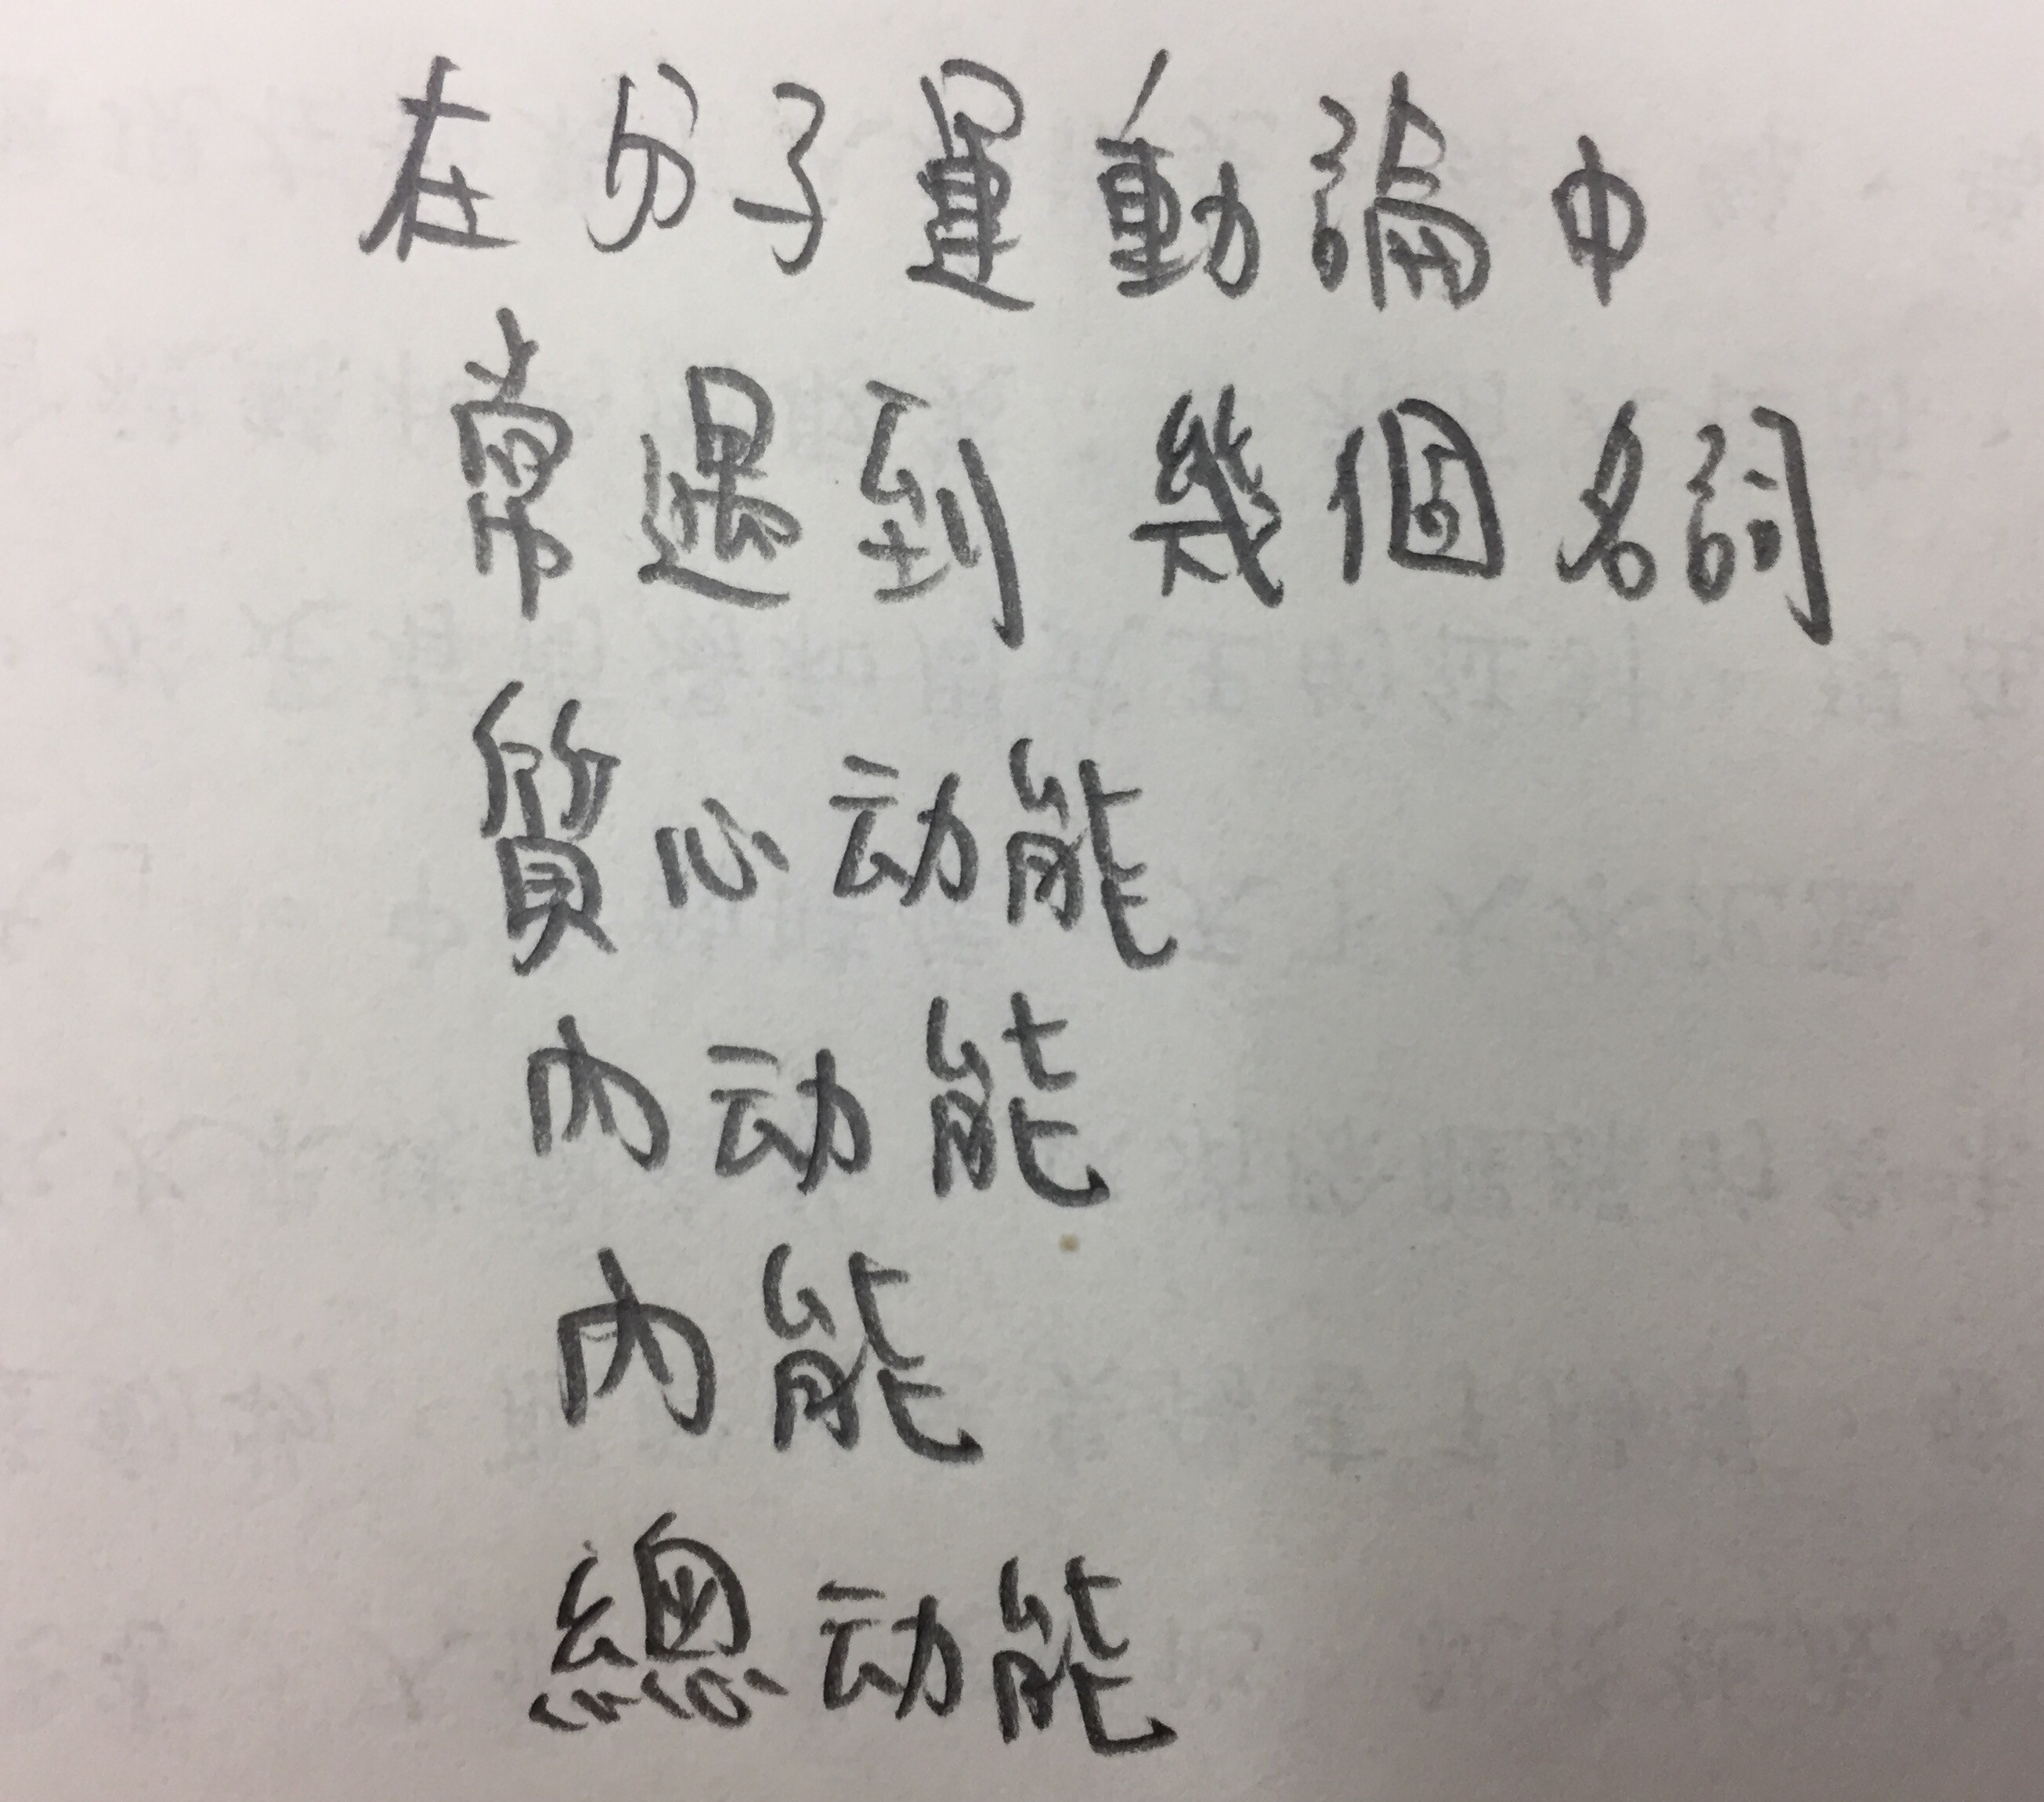 在分子運動論中
常遇到 幾個名詞
質心动能
內动能
內能
總动能